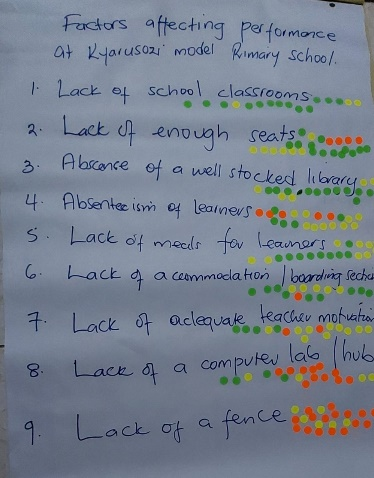 Factors affecting performance
at Kyarusozi model Primary School.
1. Lack of school classrooms
2. Lack of enough seats
3. Abscence of a well stocked library
4. Absenteeism of learners
5. Lack of meals for learners
6. Lack of accommodation / boarding
7. Lack of adequate teacher motivation
8. Lack of a computer lab / hub
9. Lack of a fence